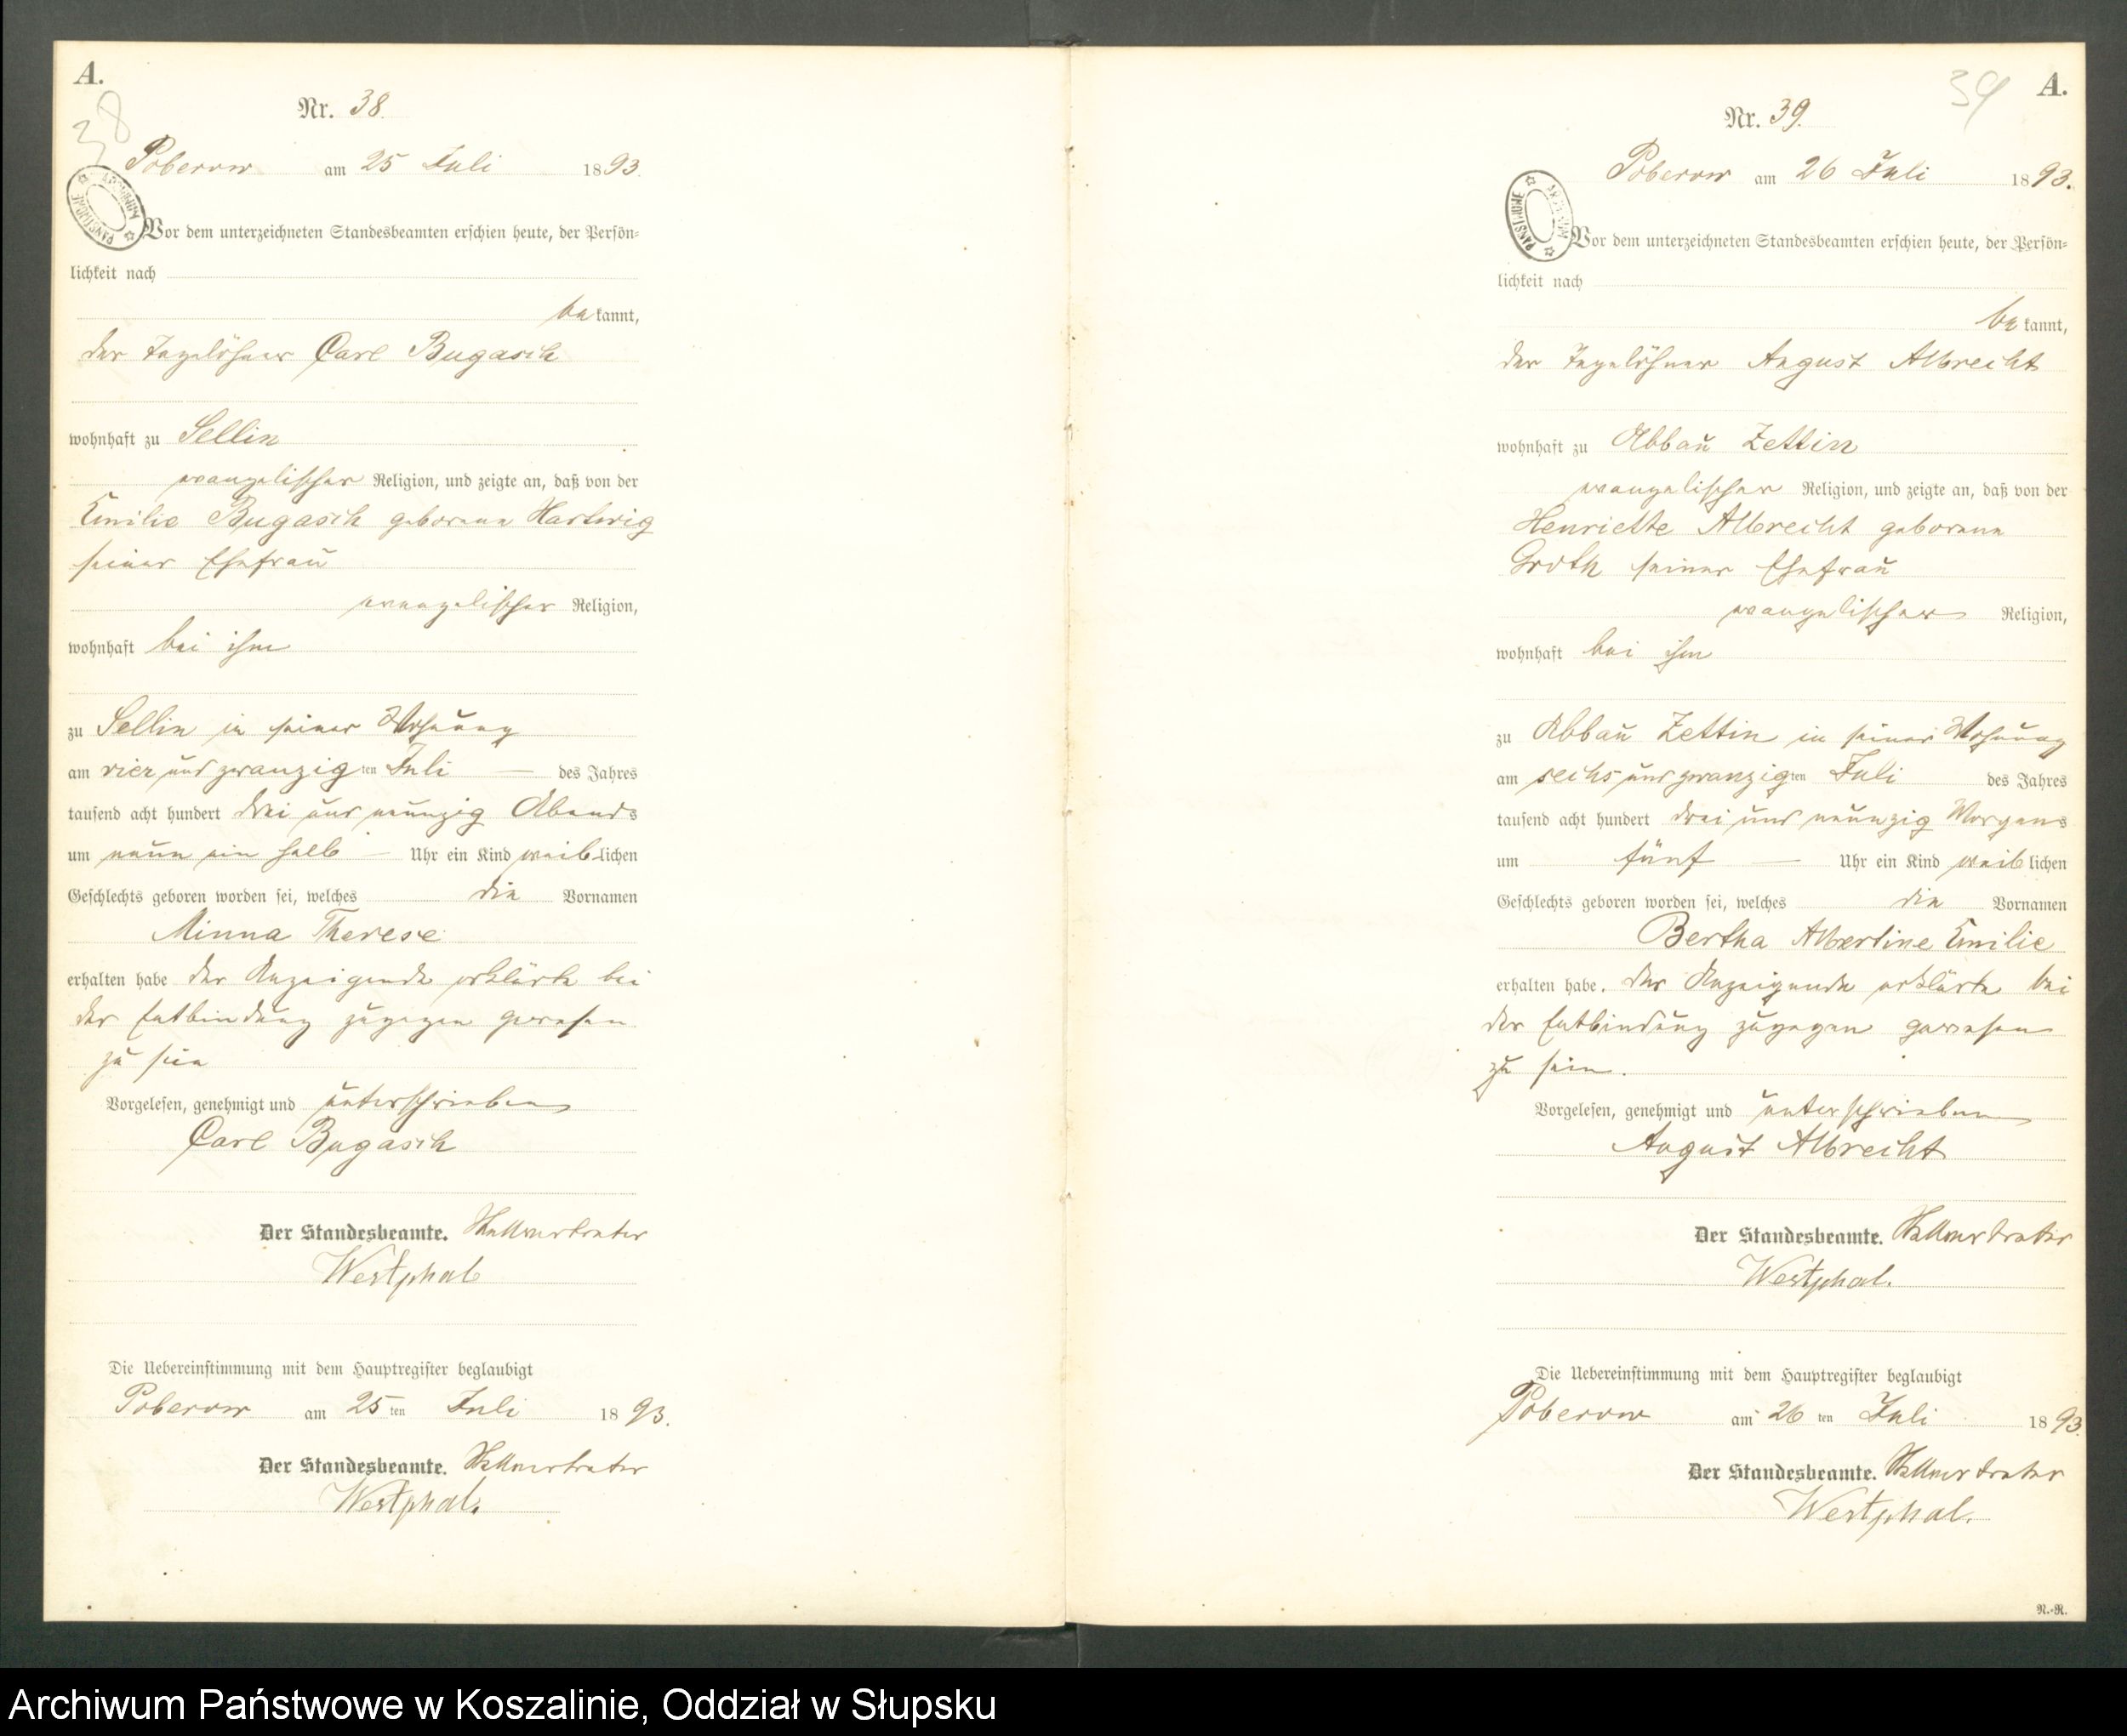 A.
38
Nr. 38
Poberow am 25 Juli 1893.
ARCHIWUM PAŃSTWOWE
Vor dem unterzeichneten Standesbeamten erschien heute, der Persön-
lichkeit nach
bekannt,
der Tagelöhner Carl Bugasch
wohnhaft zu Sellin
evangelischer Religion, und zeigte an, daß von der
Emilie Bugasch geborene Hartwig
seiner Ehefrau
evangelischer Religion,
wohnhaft bei ihm
zu Sellin in seiner Wohnung
am vier und zwanzigten Juli — des Jahres
tausend acht hundert drei und neunzig Abends
um neun ein halb — Uhr ein Kind weiblichen
Geschlechts geboren worden sei, welches die Vornamen
Minna Therese
erhalten habe der Anzeigende erklärte bei
der Entbindung zugegen gewesen
zu sein
Vorgelesen, genehmigt und unterschrieben
Carl Bugasch
Der Standesbeamte. Stellvertreter
Westphal
Die Uebereinstimmung mit dem Hauptregister beglaubigt
Poberow am 25ten Juli 1893.
Der Standesbeamte. Stellvertreter
Westphal.
39 A.
Nr. 39.
Poberow am 26 Juli 1893.
ARCHIWUM PAŃSTWOWE
Vor dem unterzeichneten Standesbeamten erschien heute, der Persön-
lichkeit nach
bekannt,
der Tagelöhner August Albrecht
wohnhaft zu Abbau Zettin
evangelischer Religion, und zeigte an, daß von der
Henriette Albrecht geborene
Groth seiner Ehefrau
evangelischer Religion,
wohnhaft bei ihm
zu Abbau Zettin in seiner Wohnung
am sechs und zwanzigten Juli des Jahres
tausend acht hundert drei und neunzig Morgens
um fünf — Uhr ein Kind weiblichen
Geschlechts geboren worden sei, welches die Vornamen
Bertha Albertine Emilie
erhalten habe. der Anzeigende erklärte bei
der Entbindung zugegen gewesen
zu sein.
Vorgelesen, genehmigt und unterschrieben
August Albrecht
Der Standesbeamte. Stellvertreter
Westphal.
Die Uebereinstimmung mit dem Hauptregister beglaubigt
Poberow am 26 ten Juli 1893.
Der Standesbeamte. Stellvertreter
Westphal.
R.-R.
Archiwum Państwowe w Koszalinie, Oddział w Słupsku